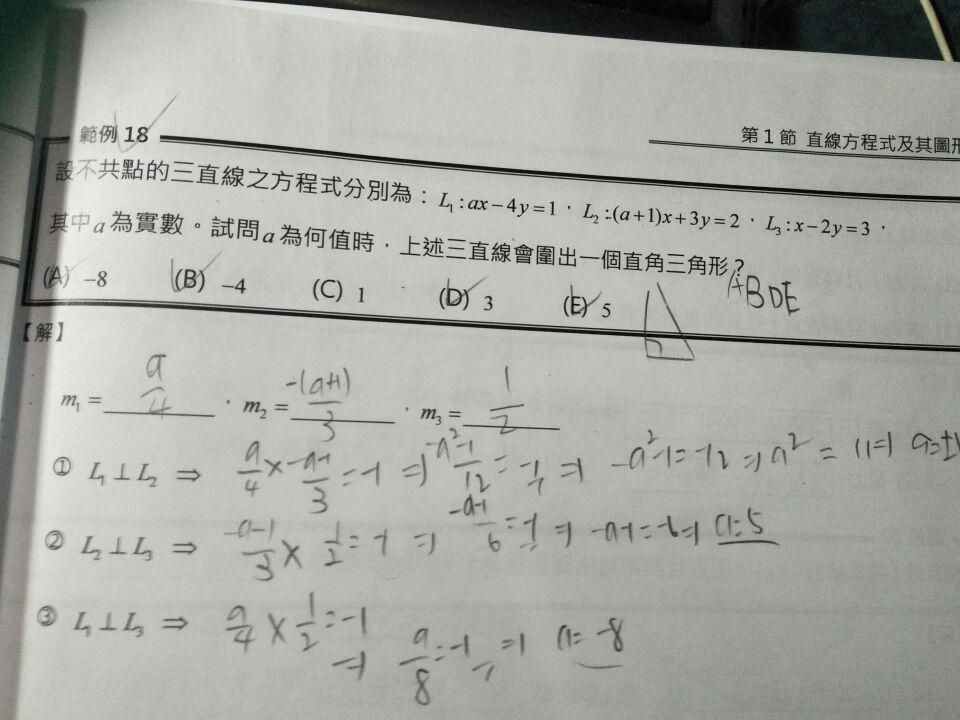 範例 18
第 1 節 直線方程式及其圖形
設不共點的三直線之方程式分別為：L₁:ax−4y=1，L₂:(a+1)x+3y=2，L₃:x−2y=3，
其中a為實數。試問a為何值時，上述三直線會圍出一個直角三角形？
(A) −8 (B) −4 (C) 1 (D) 3 (E) 5 ABDE
【解】
m₁ = a/4 ，m₂ = -(a+1)/3 ，m₃ = 1/2
① L₁⊥L₂ ⇒ a/4 × -a-1/3 = -1 ⇒ -a²-1/12 = -1/1 ⇒ -a²-1=-12 ⇒ a² = 11 ⇒ a=±
② L₂⊥L₃ ⇒ -a-1/3 × 1/2 = -1 ⇒ -a-1/6 = -1/1 ⇒ -a-1=-6 ⇒ a=5
③ L₁⊥L₃ ⇒ a/4 × 1/2 = -1
⇒ a/8 = -1/1 ⇒ a= -8